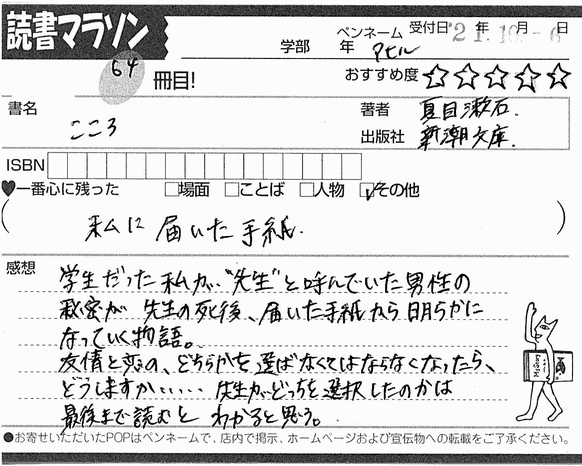 読書マラソン
学部 年 ペンネーム アヒル 受付日 '21.10.-6 年 月 日
64 冊目!
おすすめ度 ☆☆☆☆☆
書名 こころ
著者 夏目漱石.
出版社 新潮文庫.
ISBN
♥一番心に残った □場面 □ことば □人物 ☑その他
(私に届いた手紙.)
感想
学生だった私が、"先生"と呼んでいた男性の
秘密が 先生の死後、届いた手紙から明らかに
なっていく物語。
友情と恋の、どちらかを選ばなくてはならなくなったら、
どうしますか…… 先生がどっちを選択したのかは
最後まで読むと わかると思う。
●お寄せいただいたPOPはペンネームで、店内で掲示、ホームページおよび宣伝物への転載をご了承ください。